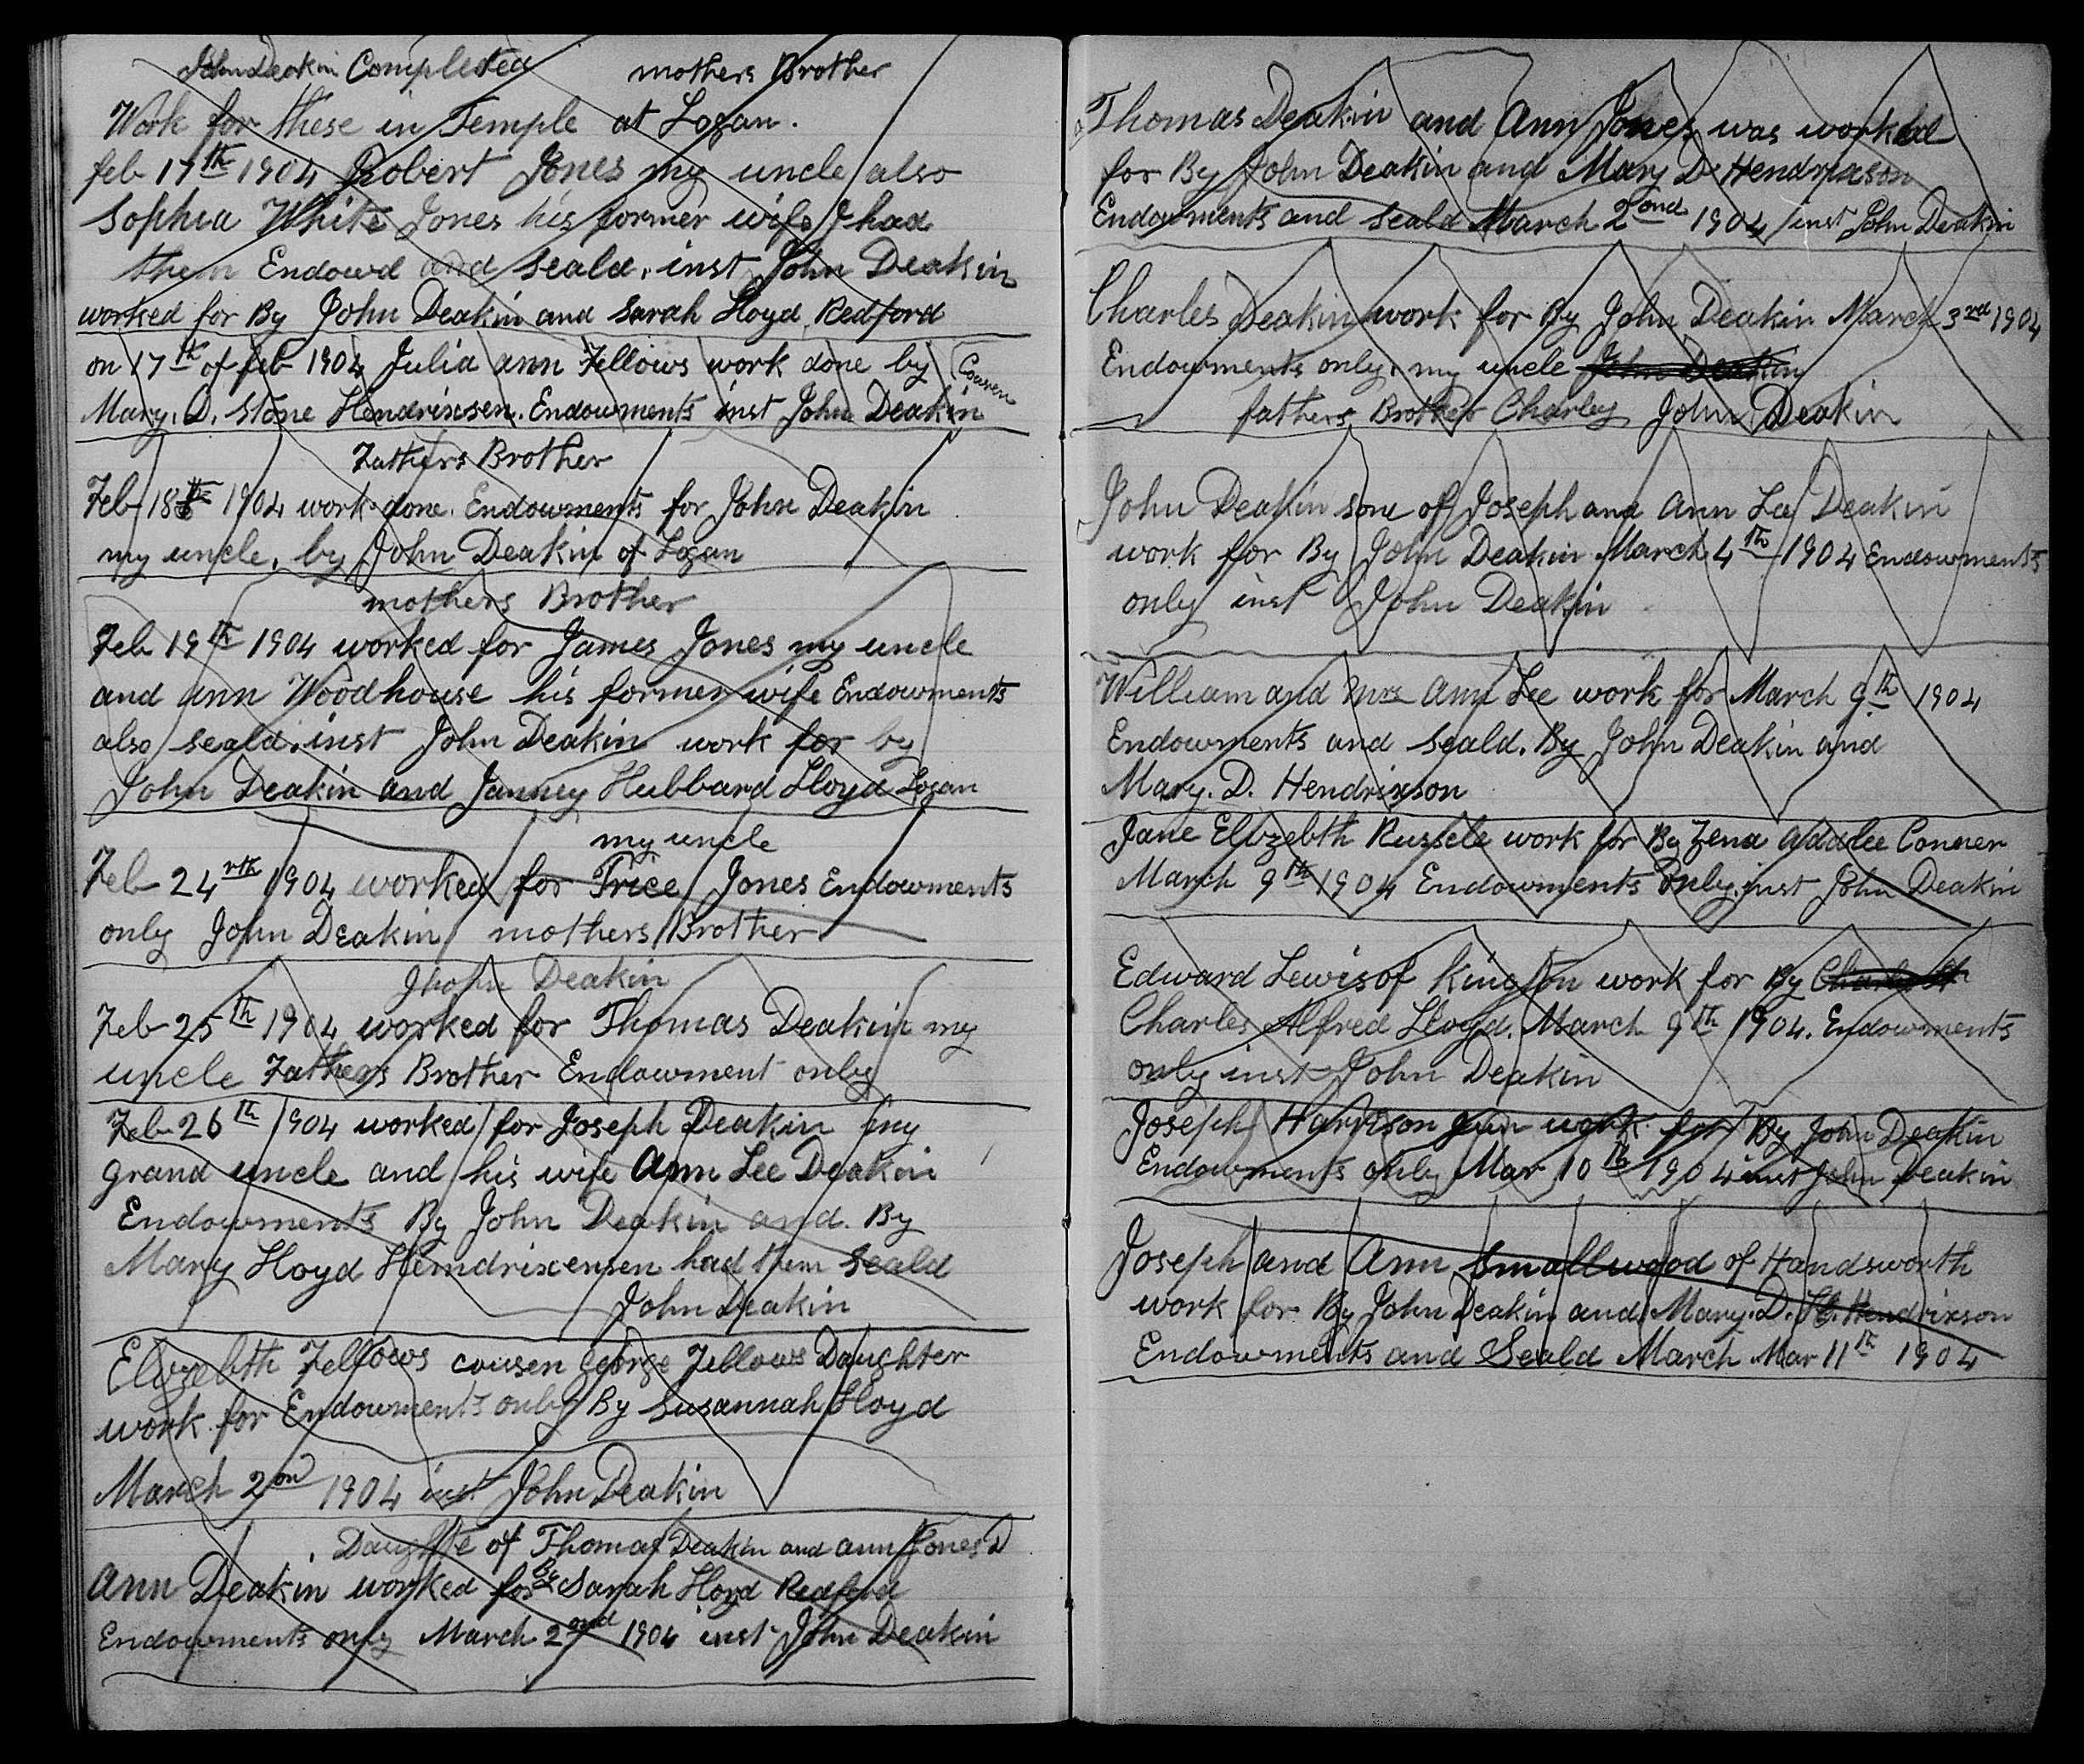 John Deakin Completed mothers Brother
Work for these in Temple at Logan.
feb 17th 1904 Robert Jones my uncle also
Sophia White Jones his former wife I had
them Endowd and seald. inst John Deakin
worked for By John Deakin and Sarah Lloyd Redford
on 17th of feb 1904 Julia ann Fellows work done by Cousen
Mary. D. Stone Hendrixsen. Endowments inst John Deakin
Fathers Brother
Feb 18th 1904 work done. Endowments for John Deakin
my uncle. by John Deakin of Logan
mothers Brother
Feb 19th 1904 worked for James Jones my uncle
and ann Woodhouse his former wife Endowments
also seald. inst John Deakin work for by
John Deakin and Janney Hubbard Lloyd Logan
my uncle
Feb 24rth 1904 worked for Price Jones Endowments
only John Deakin mothers Brother
Jhohn Deakin
Feb 25th 1904 worked for Thomas Deakin my
uncle Fathers Brother Endowment only
Feb 26th 1904 worked for Joseph Deakin my
grand uncle and his wife Ann Lee Deakin
Endowments By John Deakin and. By
Mary Lloyd Hendrixensen had them seald
John Deakin
Elizebth Fellows cousen George Fellows Daughter
work for Endowments only By Susannah Lloyd
March 2on 1904 inst John Deakin
Daughte of Thomas Deakin and ann Jones D
Ann Deakin worked for By Sarah Lloyd Redford
Endowments only March 2ond 1904 inst John Deakin
Thomas Deakin and Ann Jones was worked
for By John Deakin and Mary D Hendrixson
Endowments and seald March 2ond 1904 inst John Deakin
Charles Deakin work for By John Deakin March 3rd 1904
Endowments only. my uncle John Deakin
fathers Brother Charley John Deakin
John Deakin sone of Joseph and Ann Lee Deakin
work for By John Deakin March 4th 1904 Endowments
only inst John Deakin
William and Mrs Ann Lee work for March 9th 1904
Endowments and seald. By John Deakin and
Mary. D. Hendrixson
Jane Elizebth Russele work for By Zena Addlee Conner
March 9th 1904 Endowments only inst John Deakin
Edward Lewis of Kington work for By
Charles Alfred Lloyd. March 9th 1904. Endowments
only inst John Deakin
Joseph Harrison Jun work for By John Deakin
Endowments only Mar 10th 1904 inst John Deakin
Joseph and Ann Smallwood of Handsworth
work for By John Deakin and Mary. D. Hendrixson
Endowments and Seald March Mar 11th 1904